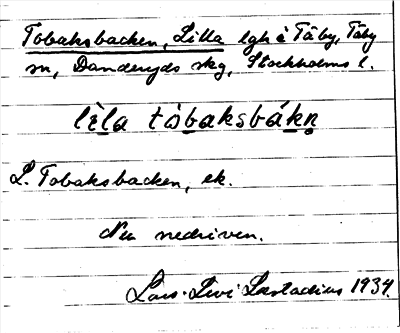 Tobaksbacken, Lilla lgh å Täby, Täby
sn, Danderyds skg, Stockholms l.
lìla tòbaksbákn̥
L. Tobaksbacken, ek.
Nu nedriven.
Lars-Levi Læstadius 1934.